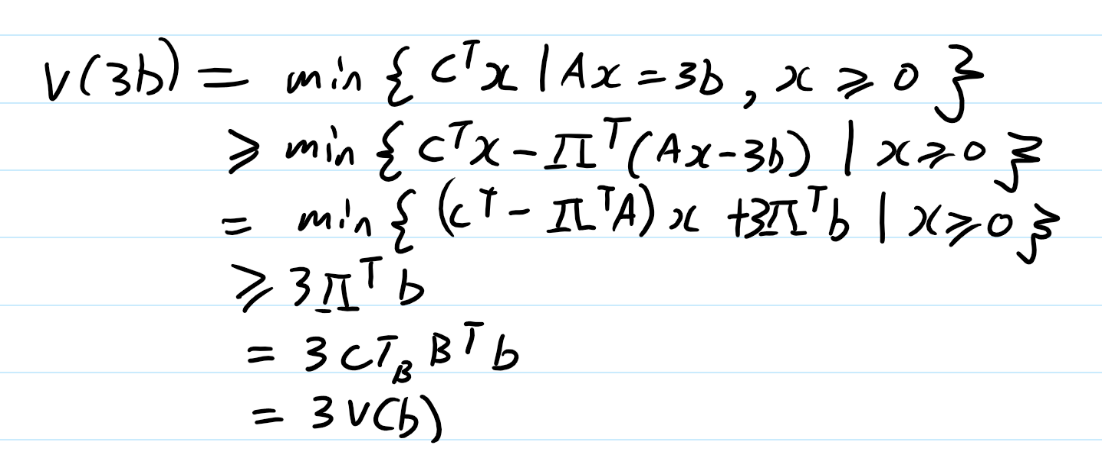 v(3b) = min { cᵀx | Ax = 3b , x ⩾ 0 }
⩾ min { cᵀx - Πᵀ(Ax-3b) | x⩾0 }
= min { (cᵀ - ΠᵀA) x +3Πᵀb | x⩾0 }
⩾ 3Πᵀ b
= 3 cT_B Bᵀ b
= 3 v(b)